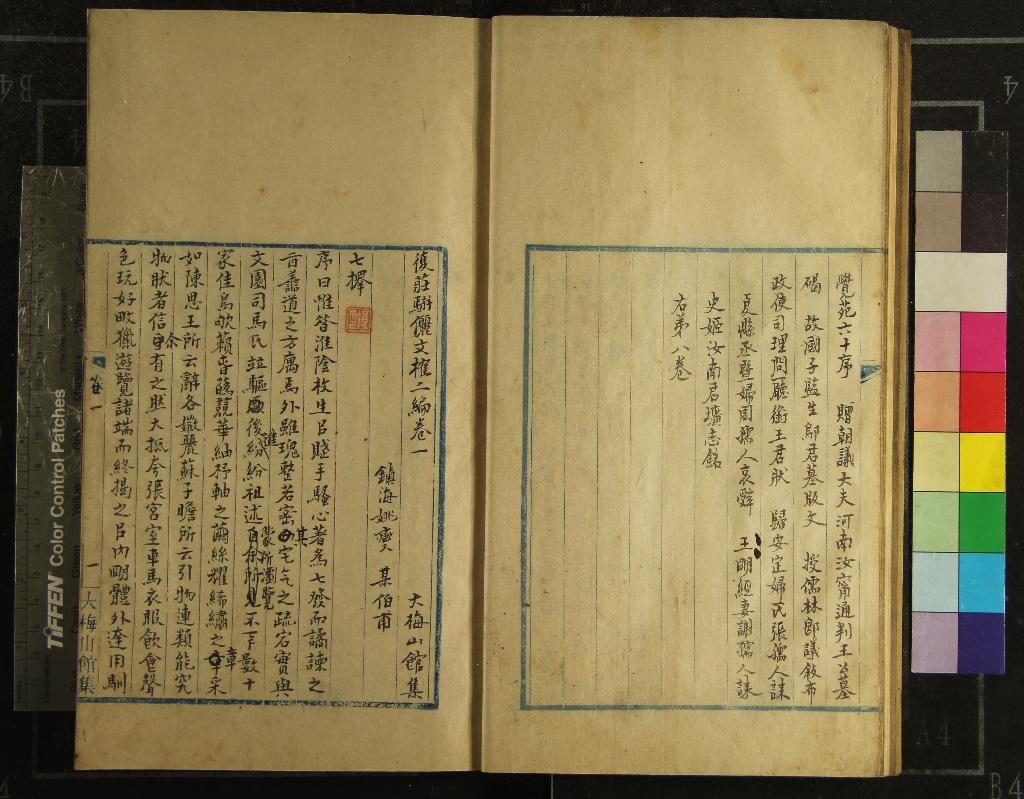 覺苑六十序 贈朝議大夫河南汝甯通判王公墓
碣 故國子監生鄔君墓版文 授儒林郎議敘布
政使司理問廳銜王君狀 歸安定婦氏張孺人誄
夏縣丞暨婦周孺人哀辭 王明經妻謝孺人誄
史姬汝南君壙志銘
右第八卷
復莊駢儷文榷二編卷一
大梅山館集
鎮海姚燮 某伯甫
七擇
序曰惟昔淮陰枚生臣賤手騷心著為七發而譎諫之
旨壽道之方寓焉外雖瑰整若密其宅气之疏宕實與
文園司馬氏並驅進後紛紛祖述蒙所濁覽不下數十
家佳鳥欨籟香鷊競華紬抒軸之繭絲耀絺繡之章采
如陳思王所云辭各媺麗蘇子瞻所云引物連類能究
物狀者信余有之然大抵夸張宮室車馬衣服飲食聲
色玩好畋獵遊覽諸端而終揭之㠯內明體外達用馴
卷一
一
大梅山館集
TIFFEN Color Control Patches
B4
A4